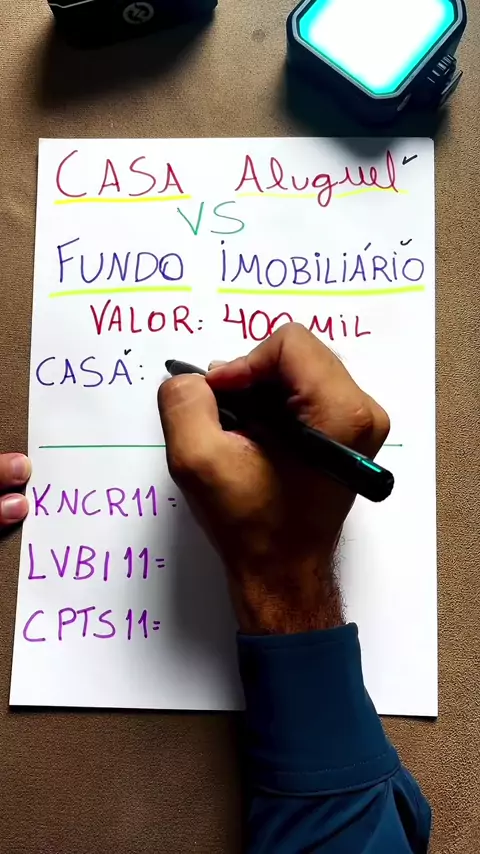 CASA Aluguel
VS
FUNDO IMOBILIÁRIO
VALOR: 400 MIL
CASA:
KNCR11=
LVBI11=
CPTS11=